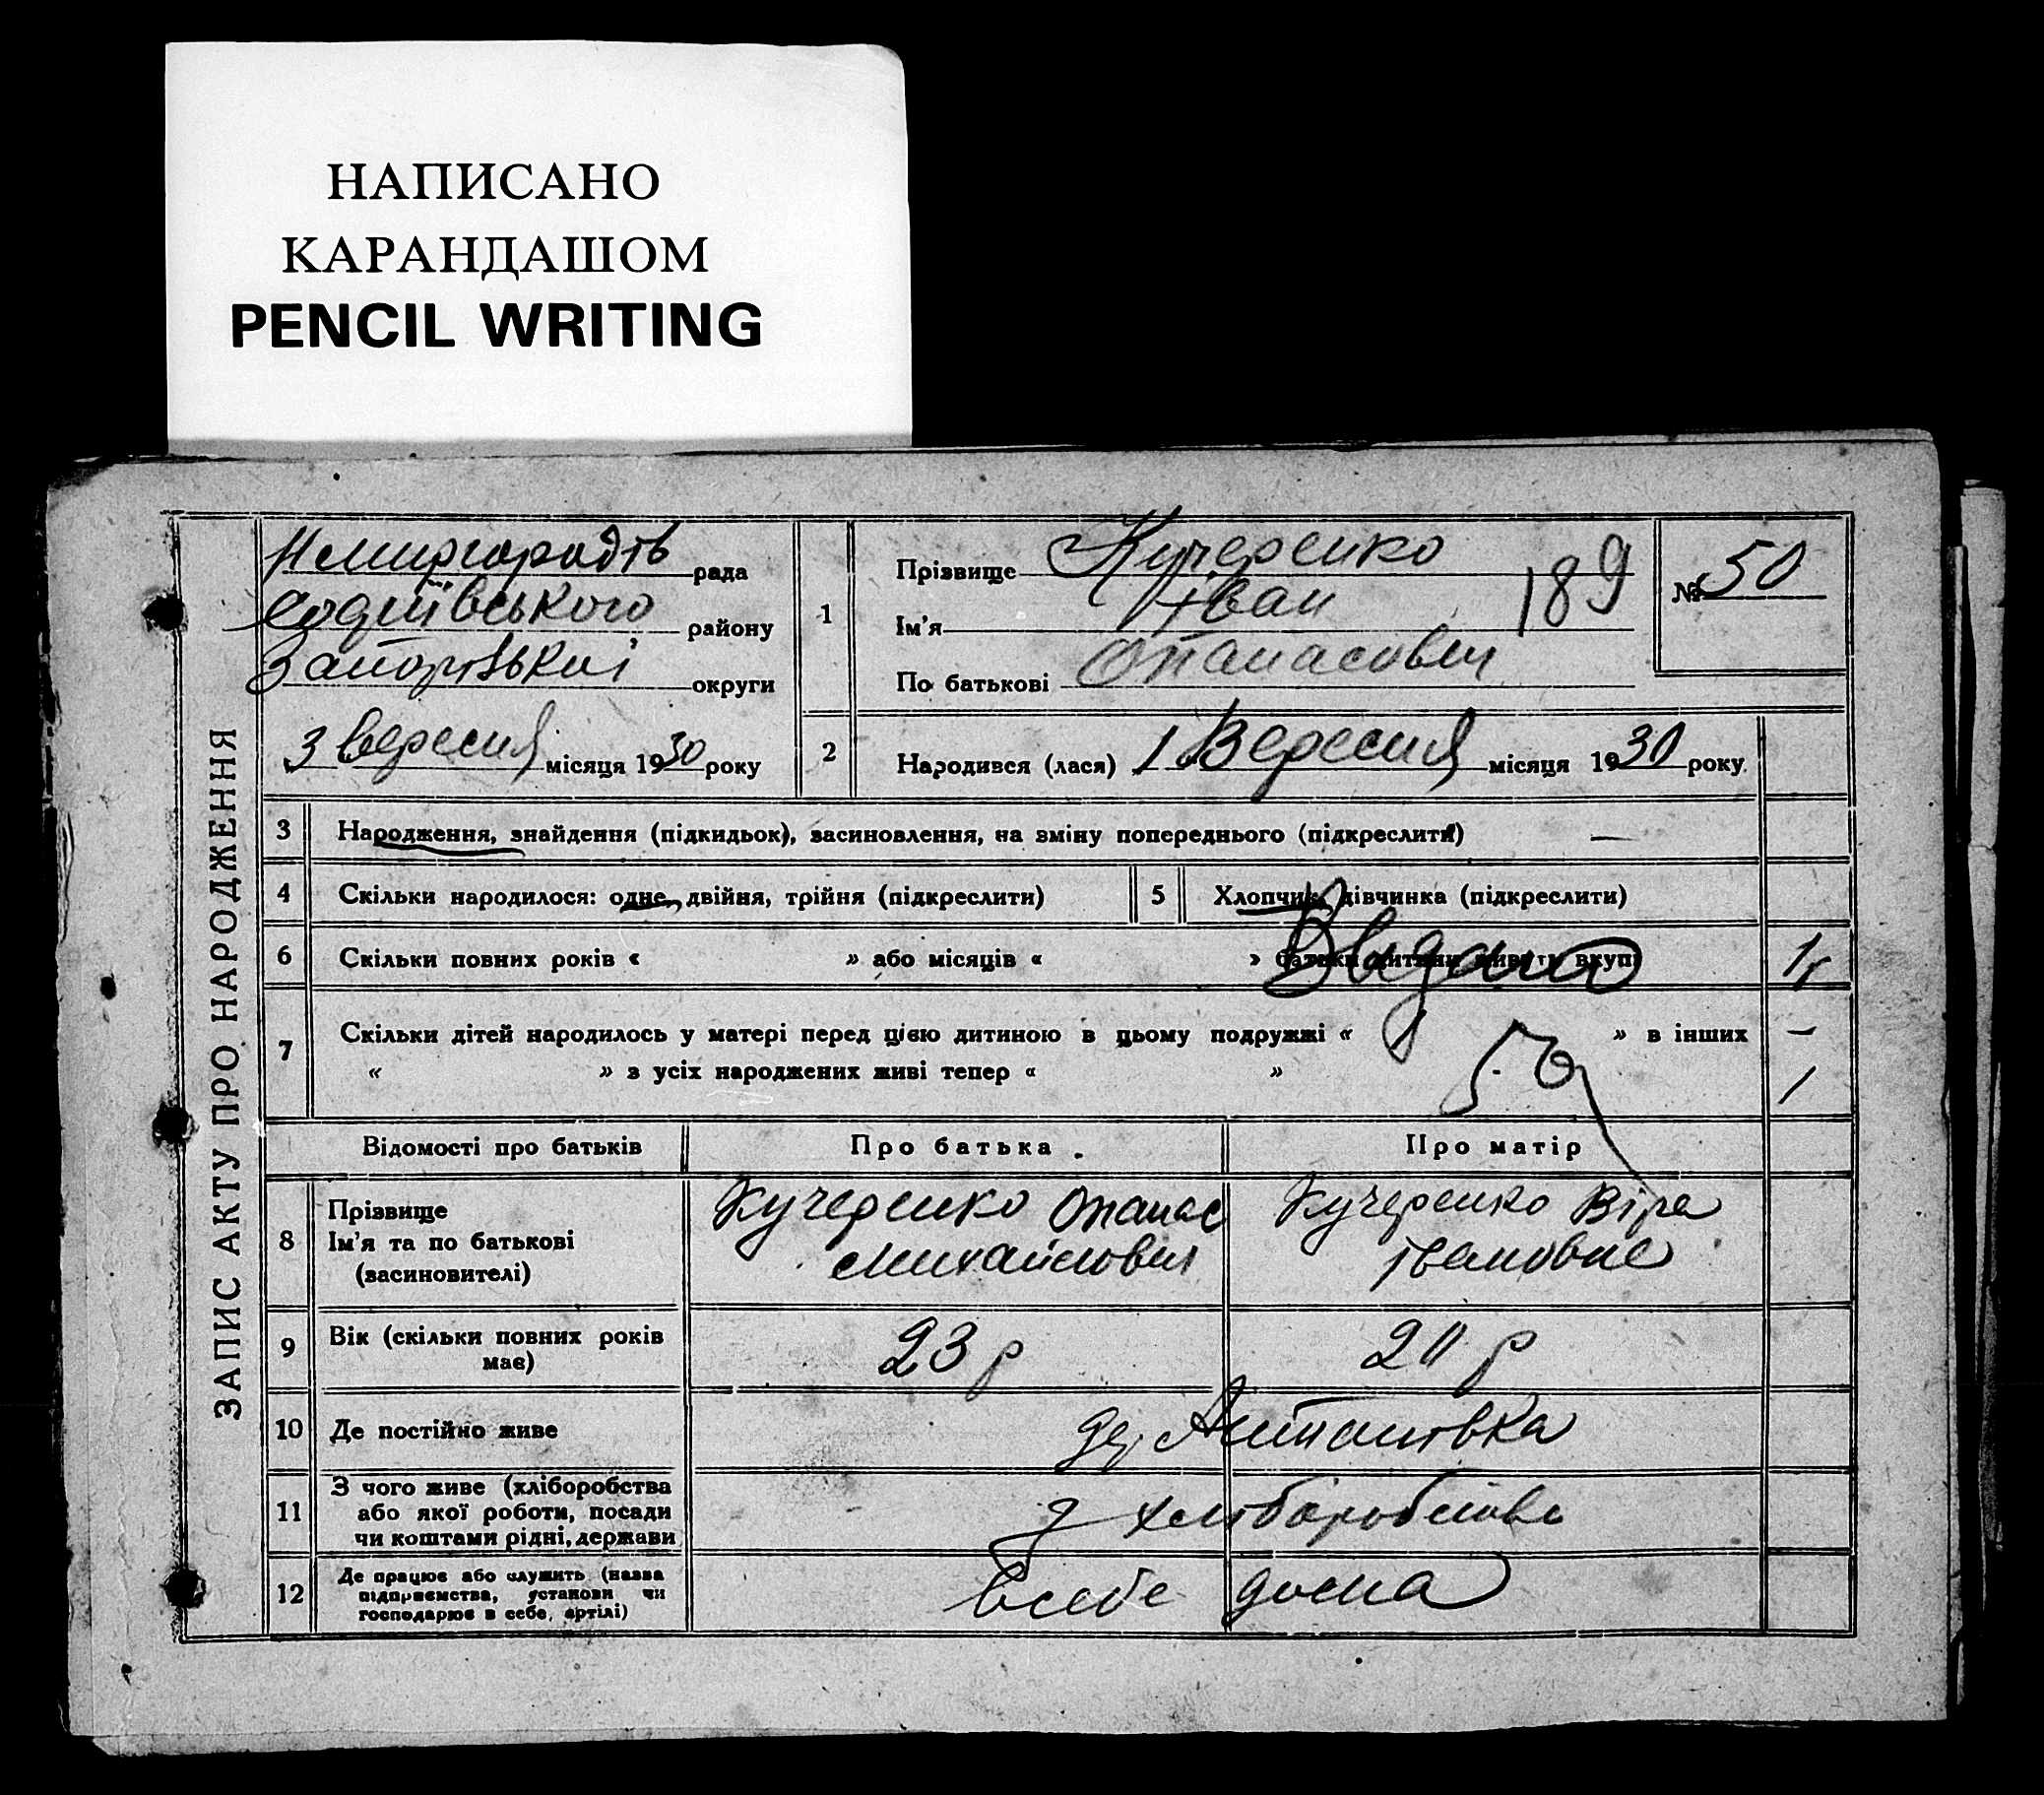 НАПИСАНО
КАРАНДАШОМ
PENCIL WRITING
ЗАПИС АКТУ ПРО НАРОДЖЕННЯ
рада
району
округи
3 вересня місяця 1930 року
1
Прізвище Кучеренко
Ім'я Іван
189
По батькові Опанасович
№ 50
2
Народився (лася) 1 Вересня місяця 1930 року
3 Народження, знайдення (підкидьок), засиновлення, на зміну попереднього (підкреслити) —
4 Скільки народилося: одне, двійня, трійня (підкреслити)
5 Хлопчик, дівчинка (підкреслити)
6 Скільки повних років « » або місяців « » батьки дитини живуть вкупі
7 Скільки дітей народилось у матері перед цією дитиною в цьому подружжі « » в інших —
« » з усіх народжених живі тепер « » 1
Відомості про батьків Про батька Про матір
8 Прізвище
Ім'я та по батькові
(засиновителі)
Кучеренко Опанас
Михайлович
Кучеренко Віра
Івановна
9 Вік (скільки повних років
має)
23 р
10 Де постійно живе
11 З чого живе (хліборобства
або якої роботи, посади
чи коштами рідні, держави
12 Де працює або служить (назва
підприємства, установи чи
господарює в себе, артілі)
в себе дома